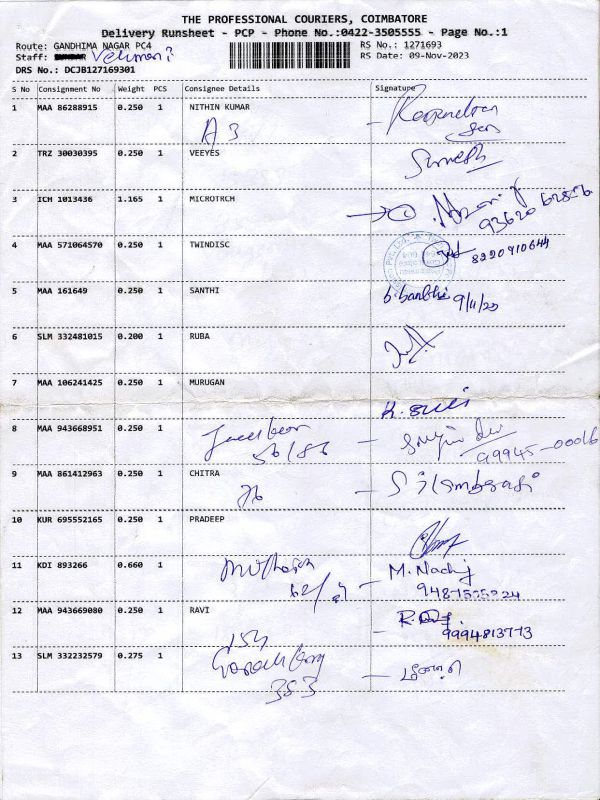 THE PROFESSIONAL COURIERS, COIMBATORE
Delivery Runsheet - PCP - Phone No.:0422-3505555 - Page No.:1
Route: GANDHIMA NAGAR PC4 RS No.: 1271693
Staff: Velmani RS Date: 09-Nov-2023
DRS No.: DCJB127169301
S No Consignment No Weight PCS Consignee Details Signature
1 MAA 86288915 0.250 1 NITHIN KUMAR
A 3
2 TRZ 30030395 0.250 1 VEEYES Suresh
3 ICH 1013436 1.165 1 MICROTRCH
4 MAA 571064570 0.250 1 TWINDISC
8220910644
5 MAA 161649 0.250 1 SANTHI
9/11/23
6 SLM 332481015 0.200 1 RUBA
7 MAA 106241425 0.250 1 MURUGAN
8 MAA 943668951 0.250 1
56/86
99945-00016
9 MAA 861412963 0.250 1 CHITRA
76
10 KUR 695552165 0.250 1 PRADEEP
11 KDI 893266 0.660 1
12 MAA 943669080 0.250 1 RAVI
9994813773
154
13 SLM 332232579 0.275 1
353